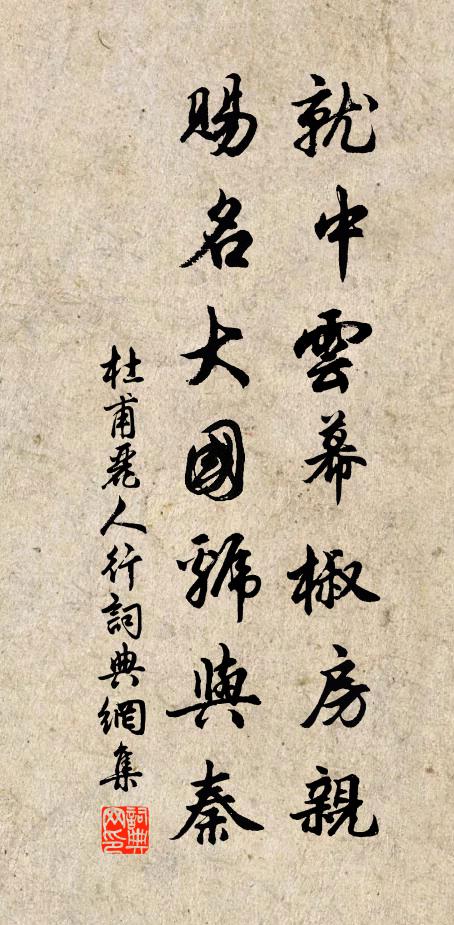 就中雲幕椒房親
賜名大國虢與秦
杜甫麗人行詞典網集
詞典網印